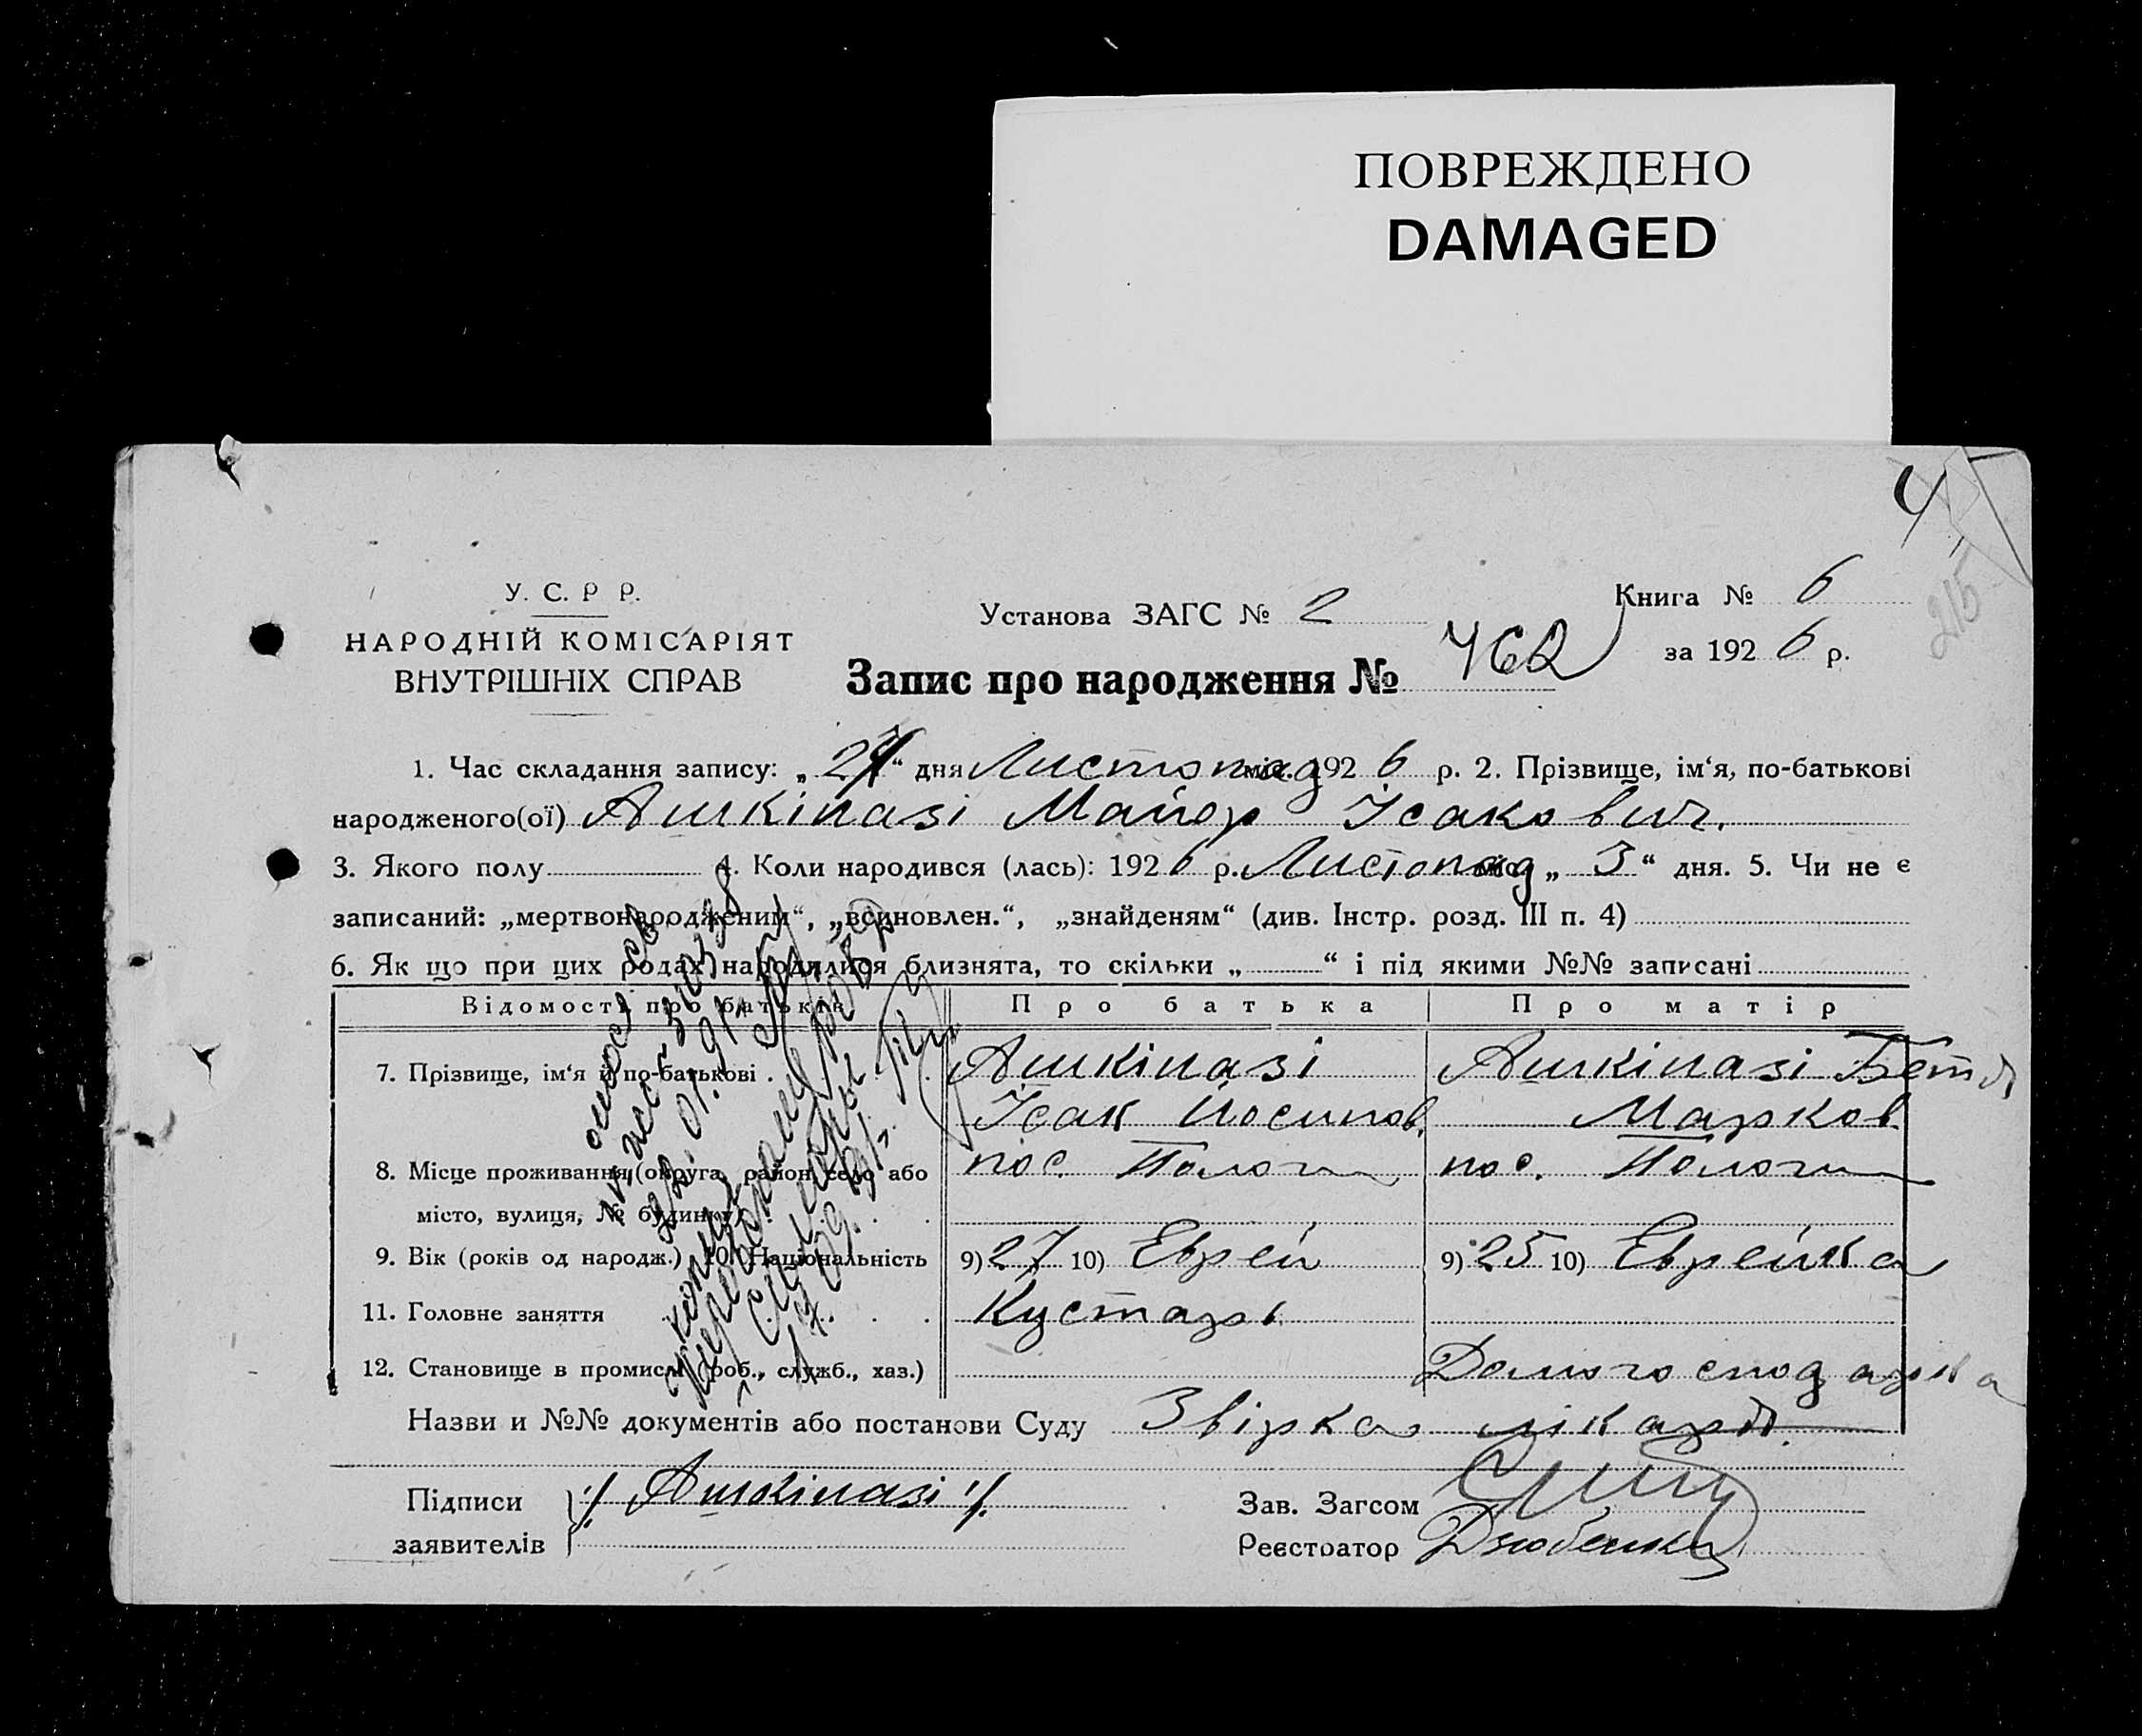 ПОВРЕЖДЕНО
DAMAGED
4
215
У. С. Р Р.
НАРОДНІЙ КОМІСАРІЯТ
ВНУТРІШНІХ СПРАВ
Установа ЗАГС № 2
Книга № 6
за 192 6 р.
Запис про народження № 462
1. Час складання запису: „ 27 “ дня Листопад міс. 192 6 р. 2. Прізвище, ім‘я, по-батькові
народженого(ої) Ашкіназі Майор Ісакович.
3. Якого полу 4. Коли народився (лась): 192 6 р. Листопад міс. „ 3 “ дня. 5. Чи не є
записаний: „мертвонародженим“, „всиновлен.“, „знайденям“ (див. Інстр. розд. III п. 4)
6. Як що при цих родах народилися близнята, то скільки „ “ і під якими №№ записані
Відомості про батьків Про батька Про матір
7. Прізвище, ім‘я й по-батькові . Ашкіназі Ашкіназі Бетя
Ісак Йосипов. Марков.
8. Місце проживання (округа, район, село або пос. Пологи пос. Пологи
місто, вулиця, № будинку)
9. Вік (років од народж.) 10. Національність 9) 27 10) Еврей 9) 25 10) Еврейка
11. Головне заняття Кустарь
12. Становище в промислі (роб., служб., хаз.) Домогосподарка
Назви и №№ документів або постанови Суду Звірка лікаря.
Підписи Ашкіназі
заявителів
Зав. Загсом
Реєстратор Дзюбенко